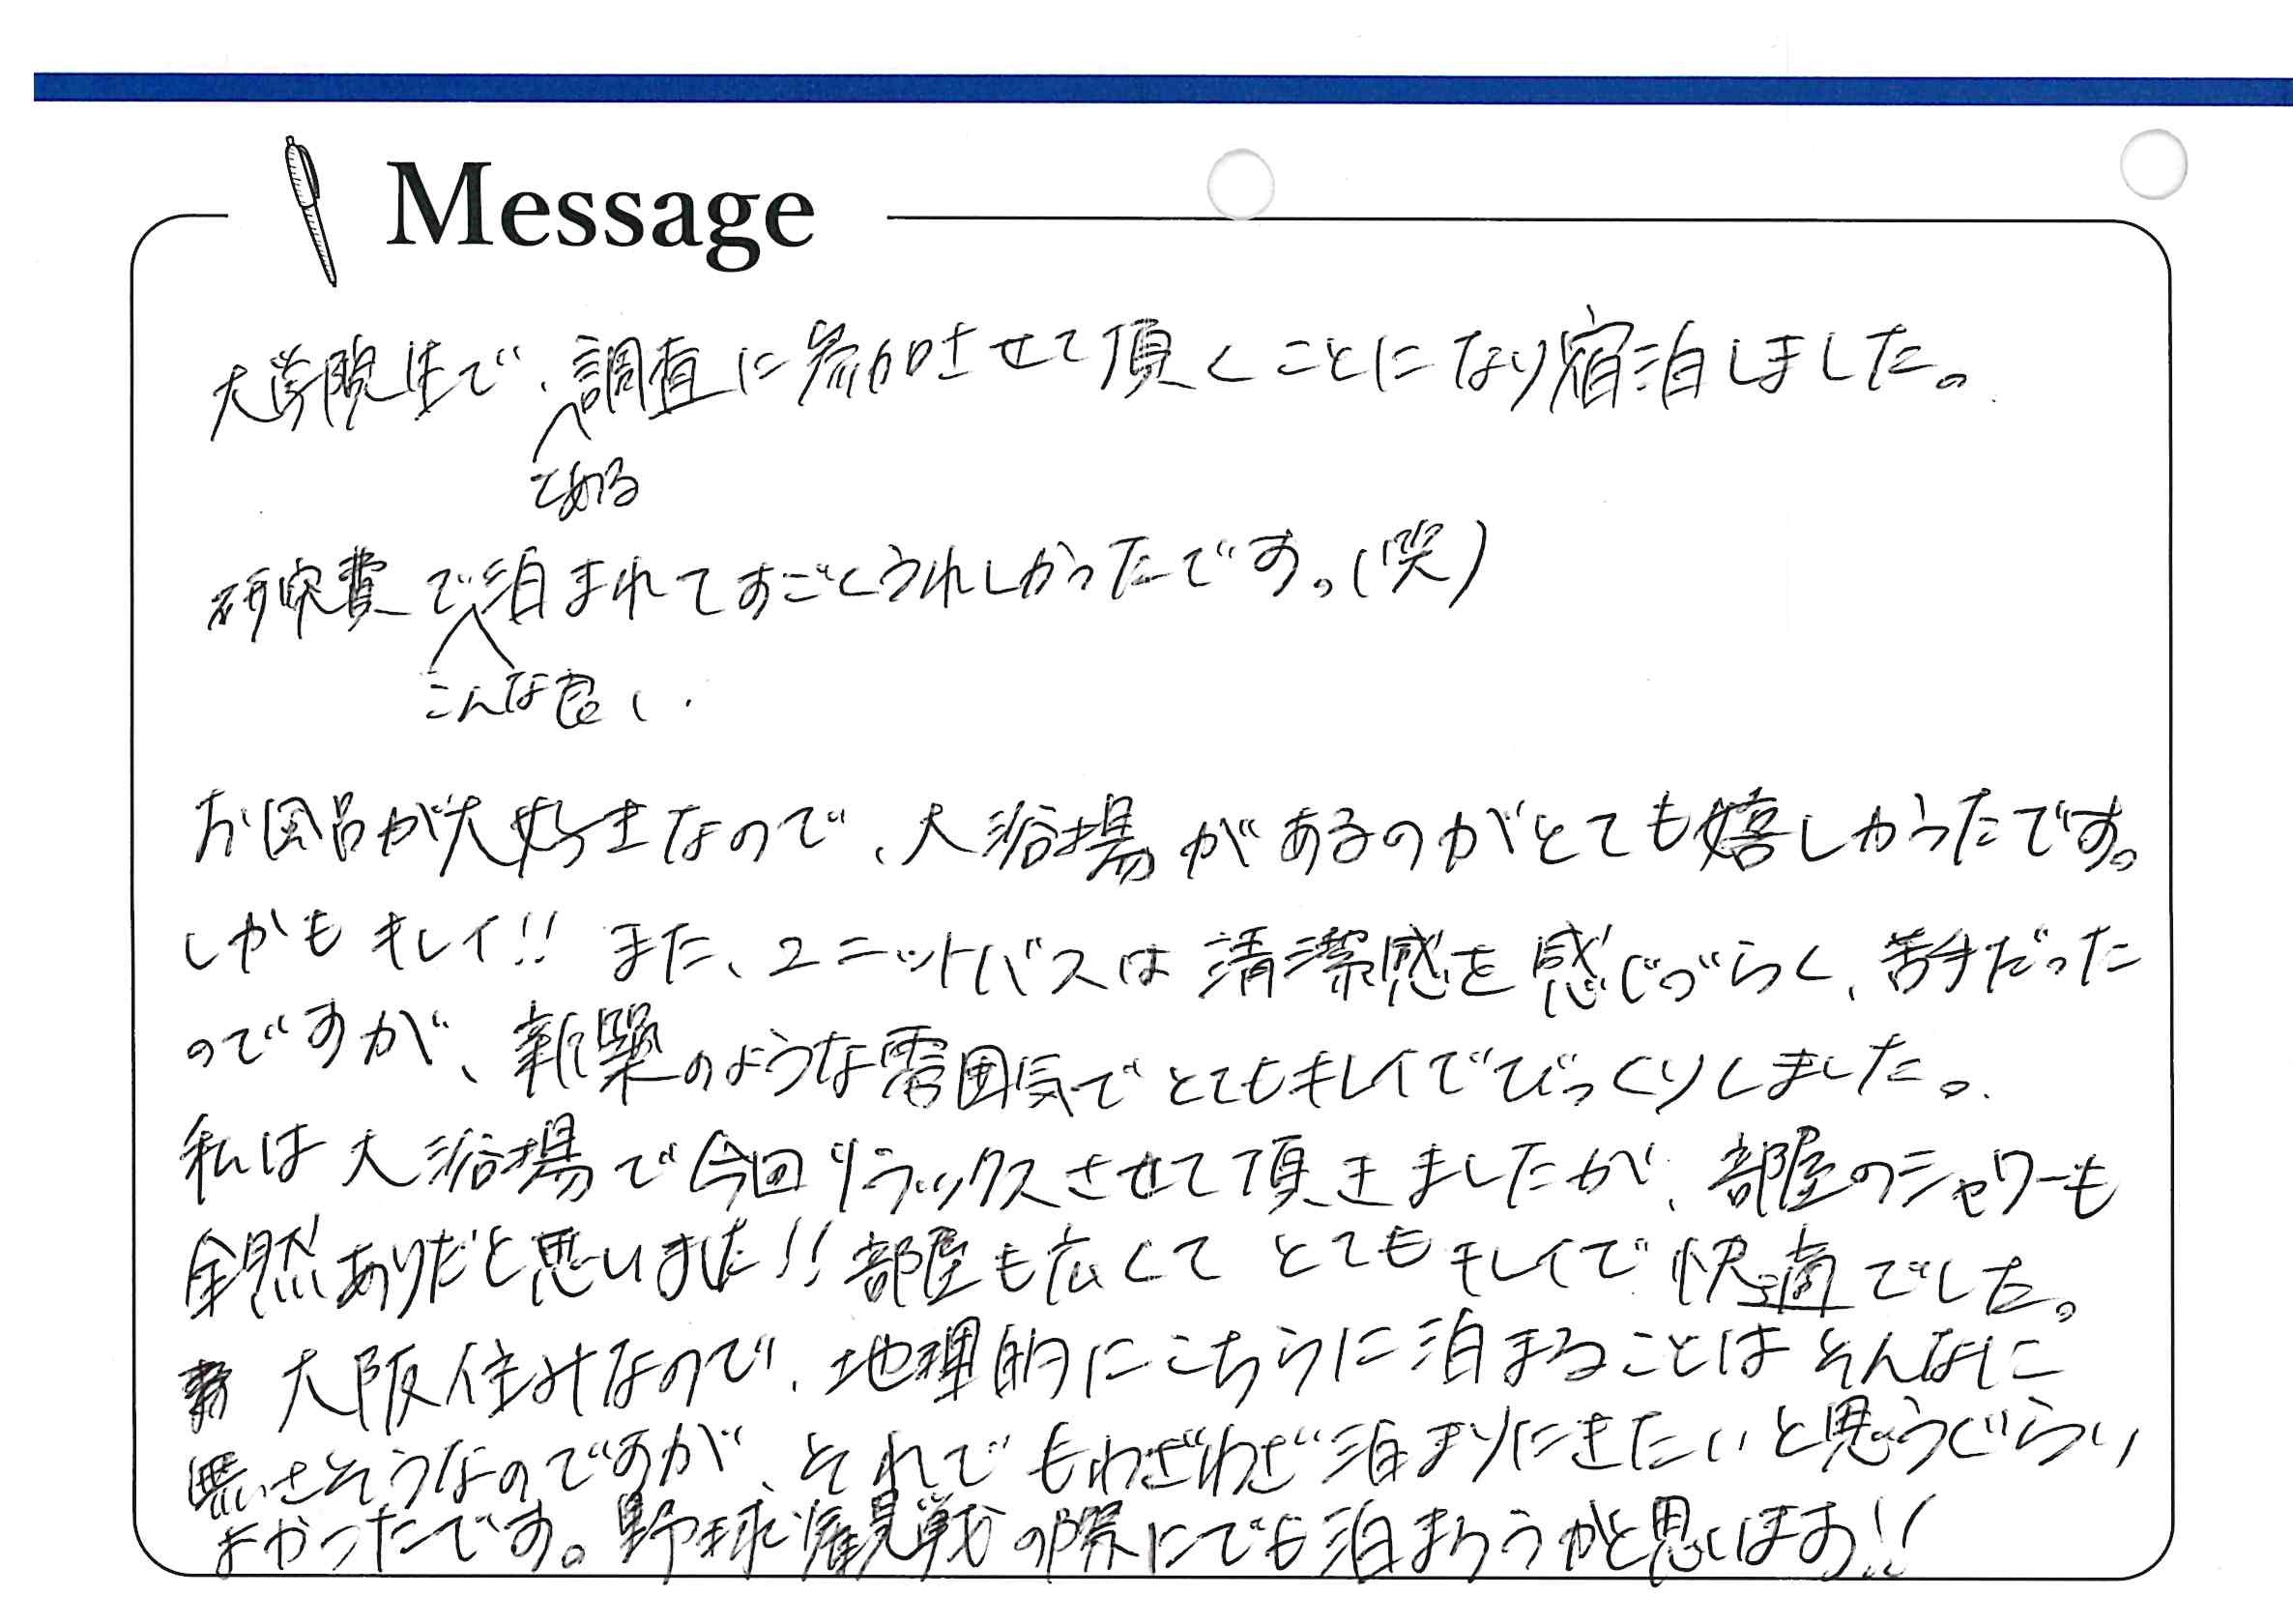 Message
大学院生で、調査に参加させて頂くことになり宿泊しました。
である
研究費で泊まれてすごくうれしかったです。(笑)
こんな良い
お風呂が大好きなので、大浴場があるのがとても嬉しかったです。
しかもキレイ!! また、ユニットバスは清潔感を感じづらく、苦手だった
のですが、新築のような雰囲気でとてもキレイでびっくりしました。
私は大浴場で今回リラックスさせて頂きましたが、部屋のシャワーも
全然ありだと思いました!! 部屋も広くてとてもキレイで快適でした。
大阪住みなので、地理的にこちらに泊まることはそんなに
無さそうなのですが、それでもわざわざ泊まりにきたいと思うぐらい
よかったです。野球観戦の際にでも泊まろうかと思います!!